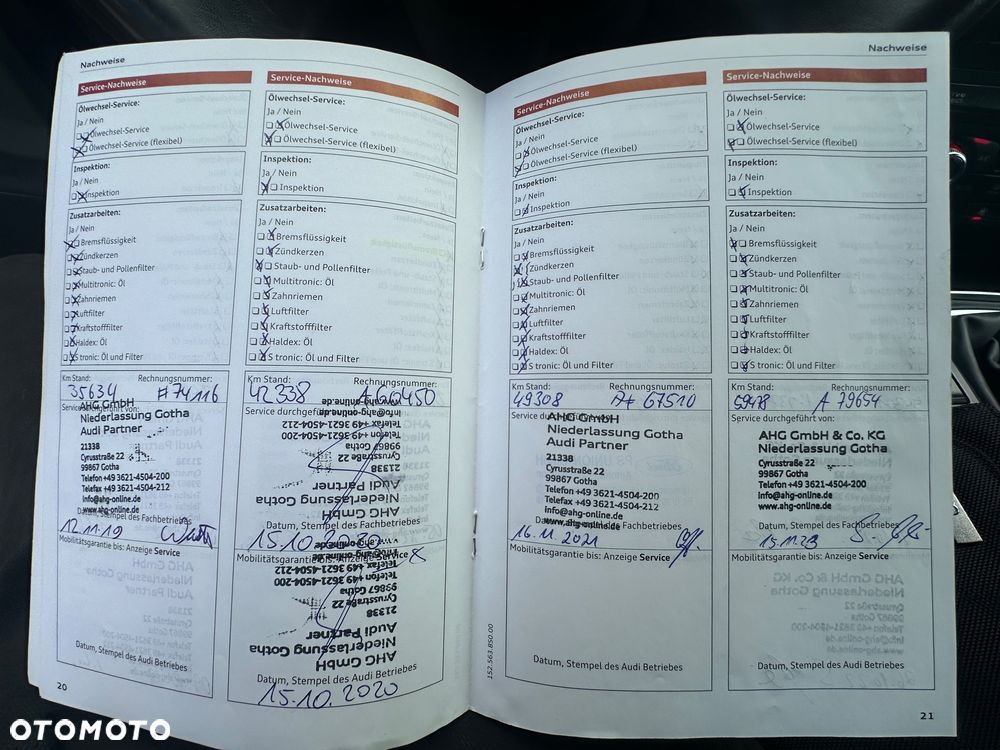 Nachweise
Service-Nachweise
Ölwechsel-Service:
Ja / Nein
Ölwechsel-Service
Ölwechsel-Service (flexibel)
Inspektion:
Ja / Nein
Inspektion
Zusatzarbeiten:
Ja / Nein
Bremsflüssigkeit
Zündkerzen
Staub- und Pollenfilter
Multitronic: Öl
Zahnriemen
Luftfilter
Kraftstofffilter
Haldex: Öl
S tronic: Öl und Filter
Km Stand: Rechnungsnummer:
35634 #74116
Service durchgeführt von:
AHG GmbH
Niederlassung Gotha
Audi Partner
21338
Cyrusstraße 22
99867 Gotha
Telefon +49 3621-4504-200
Telefax +49 3621-4504-212
info@ahg-online.de
www.ahg-online.de
Datum, Stempel des Fachbetriebes
12.11.19
Mobilitätsgarantie bis: Anzeige Service
Datum, Stempel des Audi Betriebes
20
Service-Nachweise
Ölwechsel-Service:
Ja / Nein
Ölwechsel-Service
Ölwechsel-Service (flexibel)
Inspektion:
Ja / Nein
Inspektion
Zusatzarbeiten:
Ja / Nein
Bremsflüssigkeit
Zündkerzen
Staub- und Pollenfilter
Multitronic: Öl
Zahnriemen
Luftfilter
Kraftstofffilter
Haldex: Öl
S tronic: Öl und Filter
Km Stand: Rechnungsnummer:
42338
Service durchgeführt
AHG GmbH
Niederlassung Gotha
Audi Partner
21338
Cyrusstraße 22
99867 Gotha
Telefon +49 3621-4504-200
Telefax +49 3621-4504-212
info@ahg-online.de
www.ahg-online.de
Datum, Stempel des Fachbetriebes
15.10.2020
Mobilitätsgarantie bis: Anzeige Service
AHG GmbH
Niederlassung Gotha
Audi Partner
21338
Cyrusstraße 22
99867 Gotha
Telefon +49 3621-4504-200
Telefax +49 3621-4504-212
info@ahg-online.de
www.ahg-online.de
Datum, Stempel des Audi Betriebes
15.10.2020
Nachweise
Service-Nachweise
Ölwechsel-Service:
Ja / Nein
Ölwechsel-Service
Ölwechsel-Service (flexibel)
Inspektion:
Ja / Nein
Inspektion
Zusatzarbeiten:
Ja / Nein
Bremsflüssigkeit
Zündkerzen
Staub- und Pollenfilter
Multitronic: Öl
Zahnriemen
Luftfilter
Kraftstofffilter
Haldex: Öl
S tronic: Öl und Filter
Km Stand: Rechnungsnummer:
49308 67510
Service durchgeführt von:
AHG GmbH
Niederlassung Gotha
Audi Partner
21338
Cyrusstraße 22
99867 Gotha
Telefon +49 3621-4504-200
Telefax +49 3621-4504-212
info@ahg-online.de
www.ahg-online.de
Datum, Stempel des Fachbetriebes
16.11.2021
Mobilitätsgarantie bis: Anzeige Service
Datum, Stempel des Audi Betriebes
152.563.8S0.00
Service-Nachweise
Ölwechsel-Service:
Ja / Nein
Ölwechsel-Service
Ölwechsel-Service (flexibel)
Inspektion:
Ja / Nein
Inspektion
Zusatzarbeiten:
Ja / Nein
Bremsflüssigkeit
Zündkerzen
Staub- und Pollenfilter
Multitronic: Öl
Zahnriemen
Luftfilter
Kraftstofffilter
Haldex: Öl
S tronic: Öl und Filter
Km Stand: Rechnungsnummer:
59478 A 79654
Service durchgeführt von:
AHG GmbH & Co. KG
Niederlassung Gotha
Cyrusstraße 22
99867 Gotha
Telefon +49 3621-4504-200
info@ahg-online.de
www.ahg-online.de
Datum, Stempel des Fachbetriebes
15.11.23
Mobilitätsgarantie bis: Anzeige Service
Datum, Stempel des Audi Betriebes
21
OTOMOTO